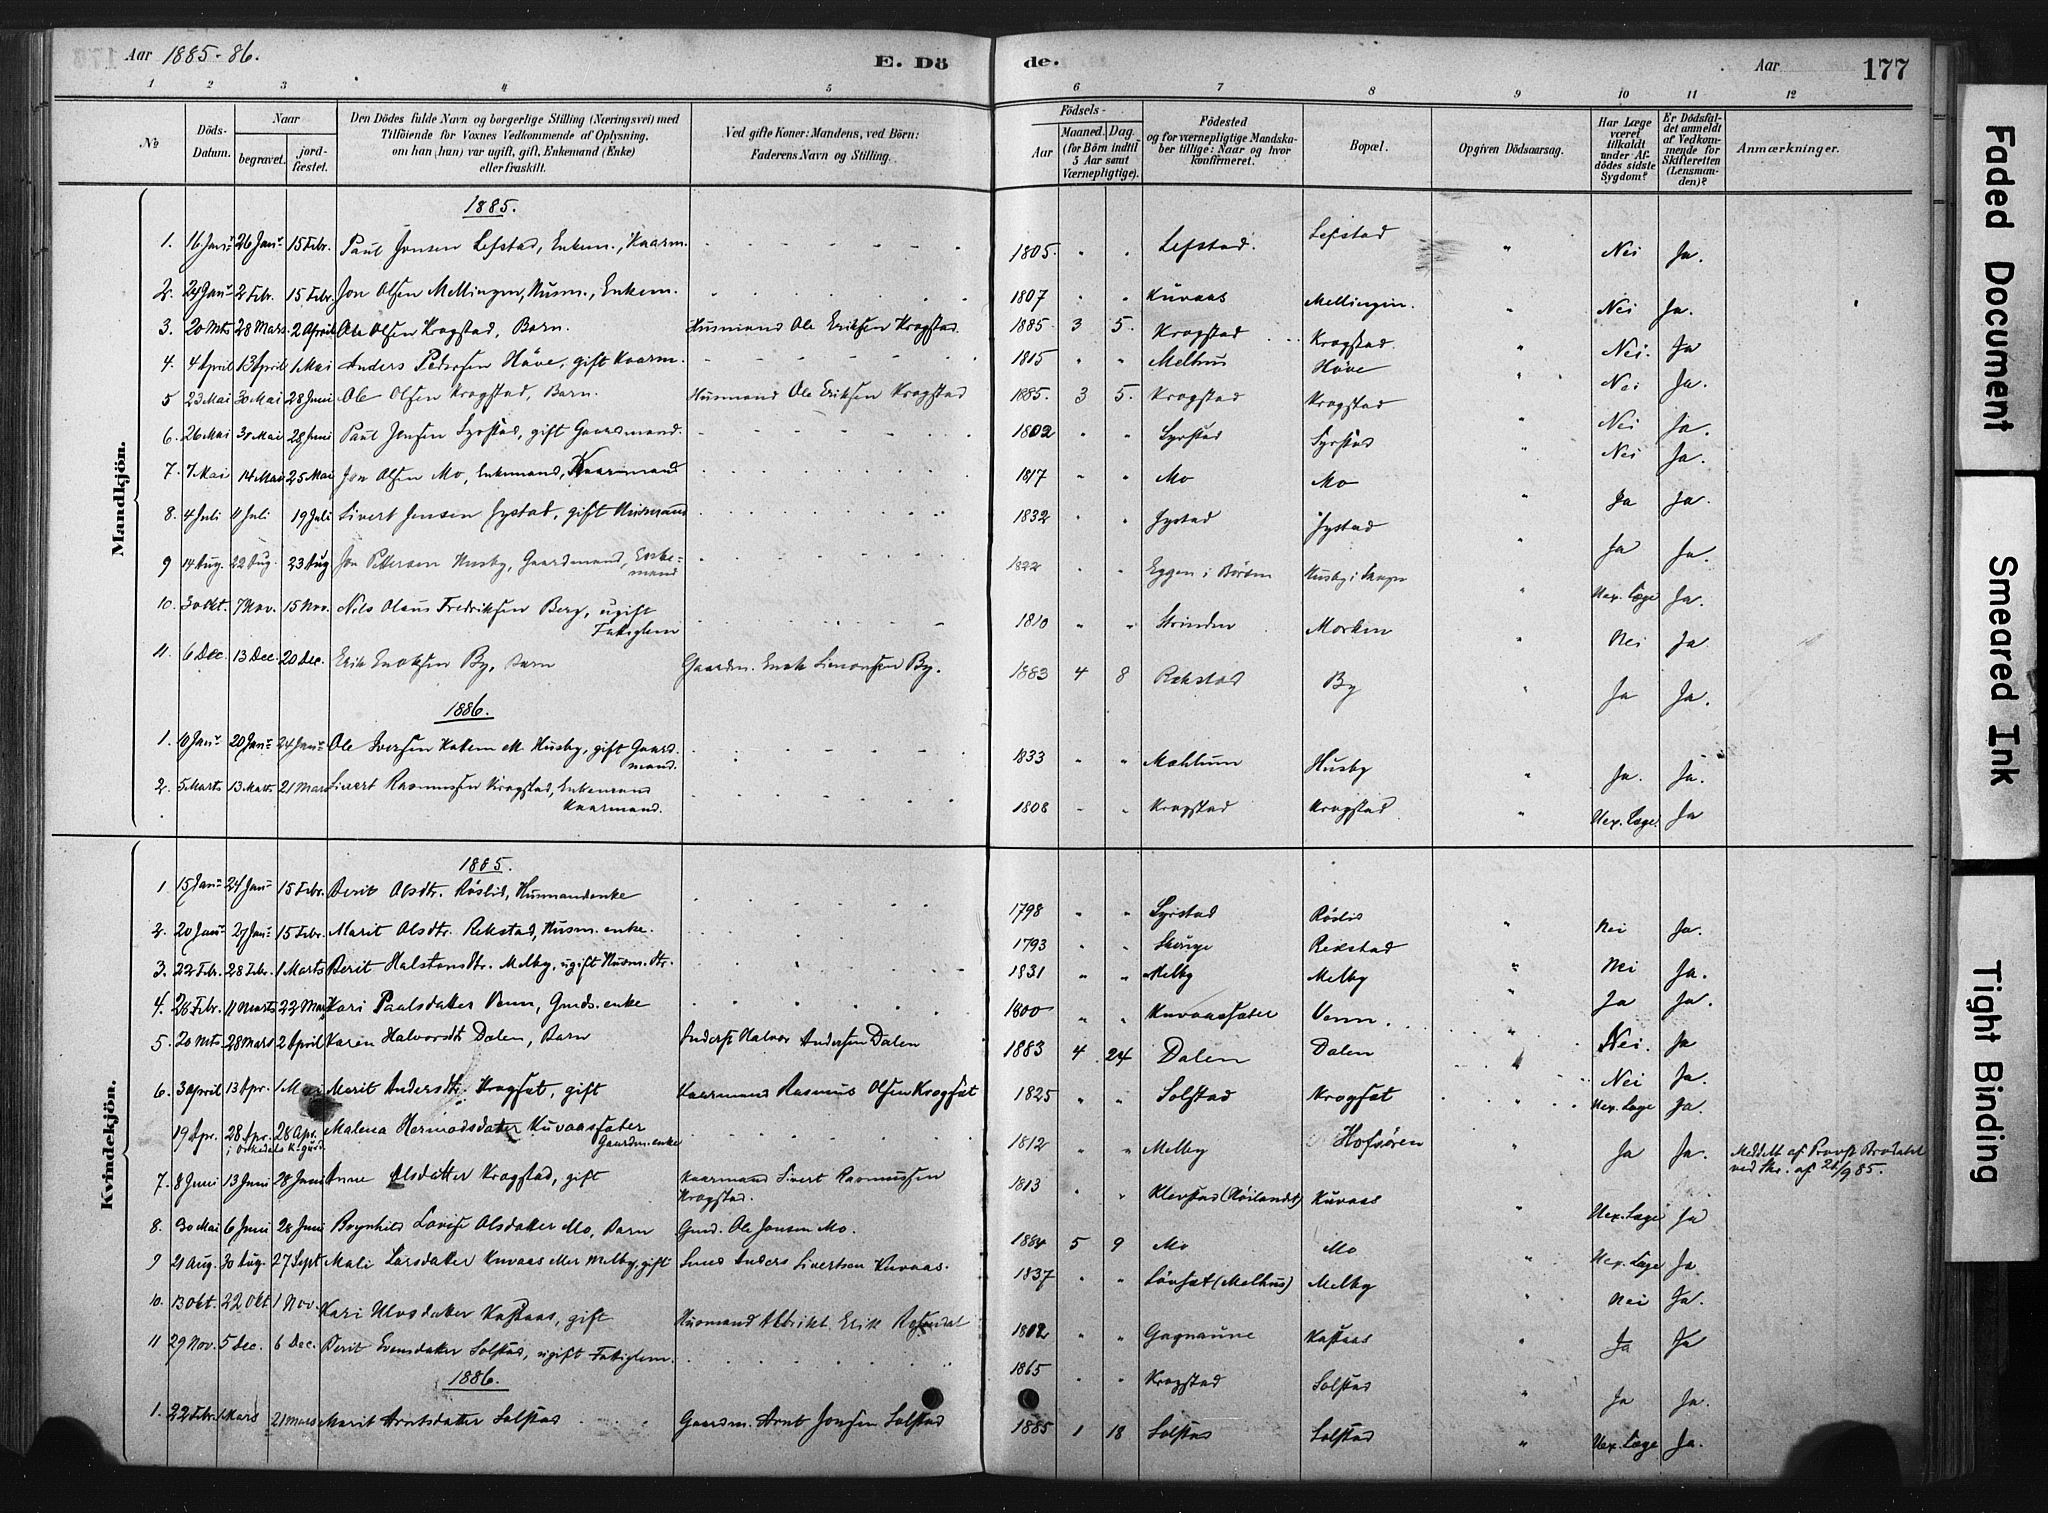 Aar 1885-86.
E. Dö
de.
Aar
177
1 2 3 4 5 6 7 8 9 10 11 12
№
Döds-Datum.
Naar
begravet.
jordfæstet.
Den Dödes fulde Navn og borgerlige Stilling (Næringsvei) med
Tilföiende for Voxnes Vedkommende af Oplysning,
om han (hun) var ugift, gift, Enkemand (Enke)
eller fraskilt.
Ved gifte Koner: Mandens, ved Börn:
Faderens Navn og Stilling.
Födsels-
Aar
Maaned. Dag.
(for Börn indtil
5 Aar samt
Værnepligtige).
Födested
og for værnepligtige Mandska-
ber tillige: Naar og hvor
konfirmeret.
Bopæl.
Opgiven Dödsaarsag.
Har Læge
været
tilkaldt
under Af-
dödes sidste
Sygdom?
Er Dödsfal-
det anmeldt
af Vedkom-
mende for
Skifteretten
(Lensman-
den)?
Anmærkninger.
Mandkjön.
1885.
1. 16 Janr 26 Janr 15 Febr. Paul Jonsen Lefstad, Enkem., Kaarm. 1805. " " Lefstad. Lefstad " Nei Ja.
2. 24 Janr 2 Febr. 15 Febr. Jon Olsen Mellingen, Husm., Enkem. 1807 " " Kuvaas Mellingen. " Nei Ja.
3. 20 Mts 28 Mars. 2 April Ole Olsen Krogstad, Barn. Husmand Ole Eriksen Krogstad. 1885 3 5. Krogstad Krogstad. " Nei. Ja
4. 4 April 13 April 1 Mai Anders Pedersen Höve, gift Kaarm. 1815 " " Melhus Höve " Nei Ja.
5 23 Mai 30 Mai 28 Juni Ole Olsen Krogstad, Barn. Husmand Ole Eriksen Krogstad 1885. 3 5. Krogstad Krogstad " Nei Ja.
6. 26 Mai 31 Mai 28 Juni Paul Jensen Syrstad, gift Gaardmand. 1802 " " Syrstad Syrstad " Nei Ja.
7. 7 Mai 14 Mai 25 Mai Jon Olsen Mo, Enkemand, Kaarmand 1817 " " Mo Mo " Ja Ja.
8. 4 Juli 11 Juli 19 Juli Sivert Jensen Jystad, gift Husmand 1832 " " Jystad Jystad " Ja Ja.
9 14 Aug. 22 Aug. 23 Aug Jon Pettersen Husby, Gaardmand, Enke-
mand 1822 " " Eggen i Börsen Husby i " Uex. Læge Ja.
10. 30 Okt. 7 Nov. 15 Nov. Nils Olaus Fredriksen Berg, ugift
Fattiglem 1810 " " Strinden Morken " Nei Ja
11. 6 Dec. 13 Dec. 20 Dec. Erik Enoksen By, Barn Gaardm. Enok Simonsen By. 1883 4 8 Rekstad By " Ja Ja.
1886.
1. 10 Janr 20 Janr 24 Janr Ole Iversen Husby, gift Gaard-
mand. 1833 " " Husby " Ja. Ja.
2. 5 Marts 13 Marts 21 Mars Sivert Rasmussen Krogstad, Enkemand
Kaarmand. 1808 " " Krogstad Krogstad " Uex. Læge. Ja
Kvindekjön.
1885.
1. 15 Janr 24 Janr 15 Febr. Berit Olsdtr. Röslid, Husmandenke 1798 " " Syrstad Röslid " Nei Ja.
2. 20 Janr 27 Janr 15 Febr. Marit Olsdtr. Rekstad, Husm. enke. 1793 " " Rekstad " Nei Ja.
3. 22 Febr. 28 Febr. 1 Marts Berit Halstensdtr. Melby, ugift Husm. dtr. 1831 " " Melby Melby " Ja Ja.
4. 28 Febr. 11 Marts 22 Mars Kari Paalsdatter Venn, Gmds. enke 1800 " " Kuvaassæter Venn. " Nei. Ja
5. 20 Mts. 28 Mars 2 April Karen Halvorsdtr Dalen, Barn Inderst Halvor Andersen Dalen 1883 4 24 Dalen Dalen " Nei Ja.
6. 3 April 13 Apr. 1 Mai Marit Andersdtr. Krogsæt, gift Kaarmand Rasmus Olsen Krogsæt 1825 " " Solstad Krogsæt " Uex. Læge Ja.
19 Apr. 28 Apr. 28 Apr. Malena Hermodsdatter Kuvaassæter
i Orkedals K-gård. Gaardm. enke 1812 " " Melby Hofsören " Ja Ja. Meddelt af Provst Brodahl
ved Skr. af 28/9 85.
7. 8 Juni 13 Juni 28 Juni Anne Olsdatter Krogstad, gift Kaarmand Sivert Rasmussen
Krogstad. 1813 " " Klevstad (Höilandet) Kuvaas " Uex. Læge Ja
8. 30 Mai 6 Juni 28 Juni Brynhild Lovise Olsdatter Mo, Barn Gmd. Ole Jonsen Mo. 1884 5 9 Mo Mo " Uex. Læge Ja
9 21 Aug. 30 Aug. 27 Sept Mali Larsdatter Kuvaas eller Melby, gift Smed Anders Sivertsen Kuvaas. 1837 " " Lövset (Melhus) Melby " Nei Ja.
10. 13 Okt. 22 Okt 1 Nov. Kari Kastaas, gift Husmand Erik 1802 " " Gagnaune Kastaas " Ja Ja
11 29 Nov. 5 Dec. 6 Dec. Berit Evensdatter Solstad, ugift Fattiglem. 1865 " " Krogstad Solstad " Ja Ja.
1886.
1. 22 Febr. 1 Mars 21 Mars Marit Arntsdatter Solstad Gaardm. Arnt Jonsen Solstad 1885 1 18 Solstad Solstad " Uex. Læge Ja.
Faded Document
Smeared Ink
Tight Binding